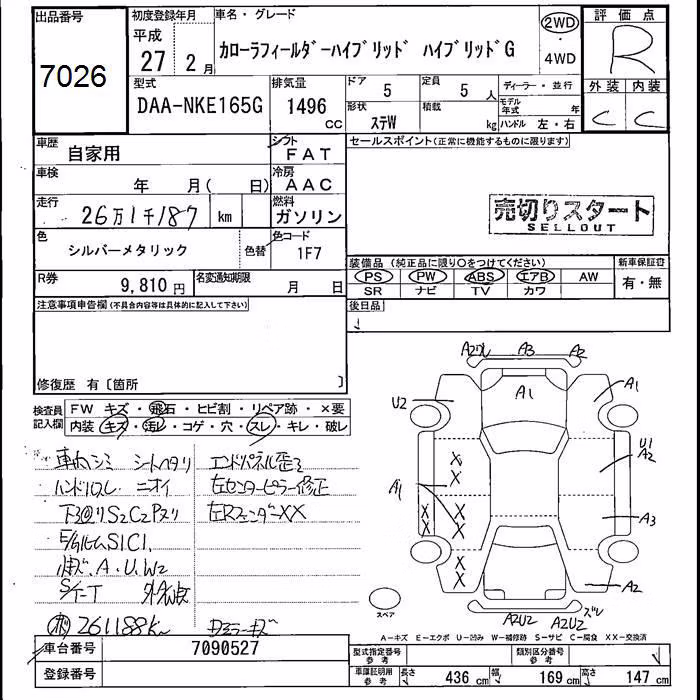 出品番号
7026
初度登録年月
平成
27年 2月
車名・グレード
カローラフィールダーハイブリッド ハイブリッドG
2WD
・
4WD
評価点
R
外装 内装
C C
型式
DAA-NKE165G
排気量
1496
CC
ドア
5
定員
5人
形状
ステW
積載
kg
ディーラー・並行
モデル年式 年
ハンドル 左・右
車歴
自家用
シフト
FAT
車検
年 月( 日)
冷房
AAC
走行
26万1千187 km
燃料
ガソリン
色
シルバーメタリック
色替
色コード
1F7
R券
9,810円
名変通知期限
月 日
セールスポイント(正常に機能するものに限ります)
売切りスタート
SELLOUT
装備品(純正品に限り○をつけてください)
PS PW ABS エアB AW
SR ナビ TV カワ
新車保証書
有・無
注意事項申告欄(不具合内容等は具体的に記入して下さい)
後日品
修復歴 有〔箇所 〕
検査員記入欄
FW キズ・飛石・ヒビ割・リペア跡・×要
内装 キズ・汚レ・コゲ・穴・スレ・キレ・破レ
車内シミ シートヘタリ
ハンドルスレ ニオイ
S2C2
S1C1
A.U.W2
S/T-T
261188km
エンドパネル歪ミ
左センターピラー修正
左RフェンダーXX
A2 A3 A2
A1
U2
A1
U1
A2
A1
X
X
X X
X X
X
X
A3
A2
A2U2 A2U2 ズレ
スペア
A-キズ E-エクボ U-凹み W-補修跡 S-サビ C-腐食 XX-交換済
車台番号
7090527
登録番号
型式指定番号
参考
類別区分番号
参考
車庫証明用
参考
長さ 436cm 幅 169cm 高さ 147cm